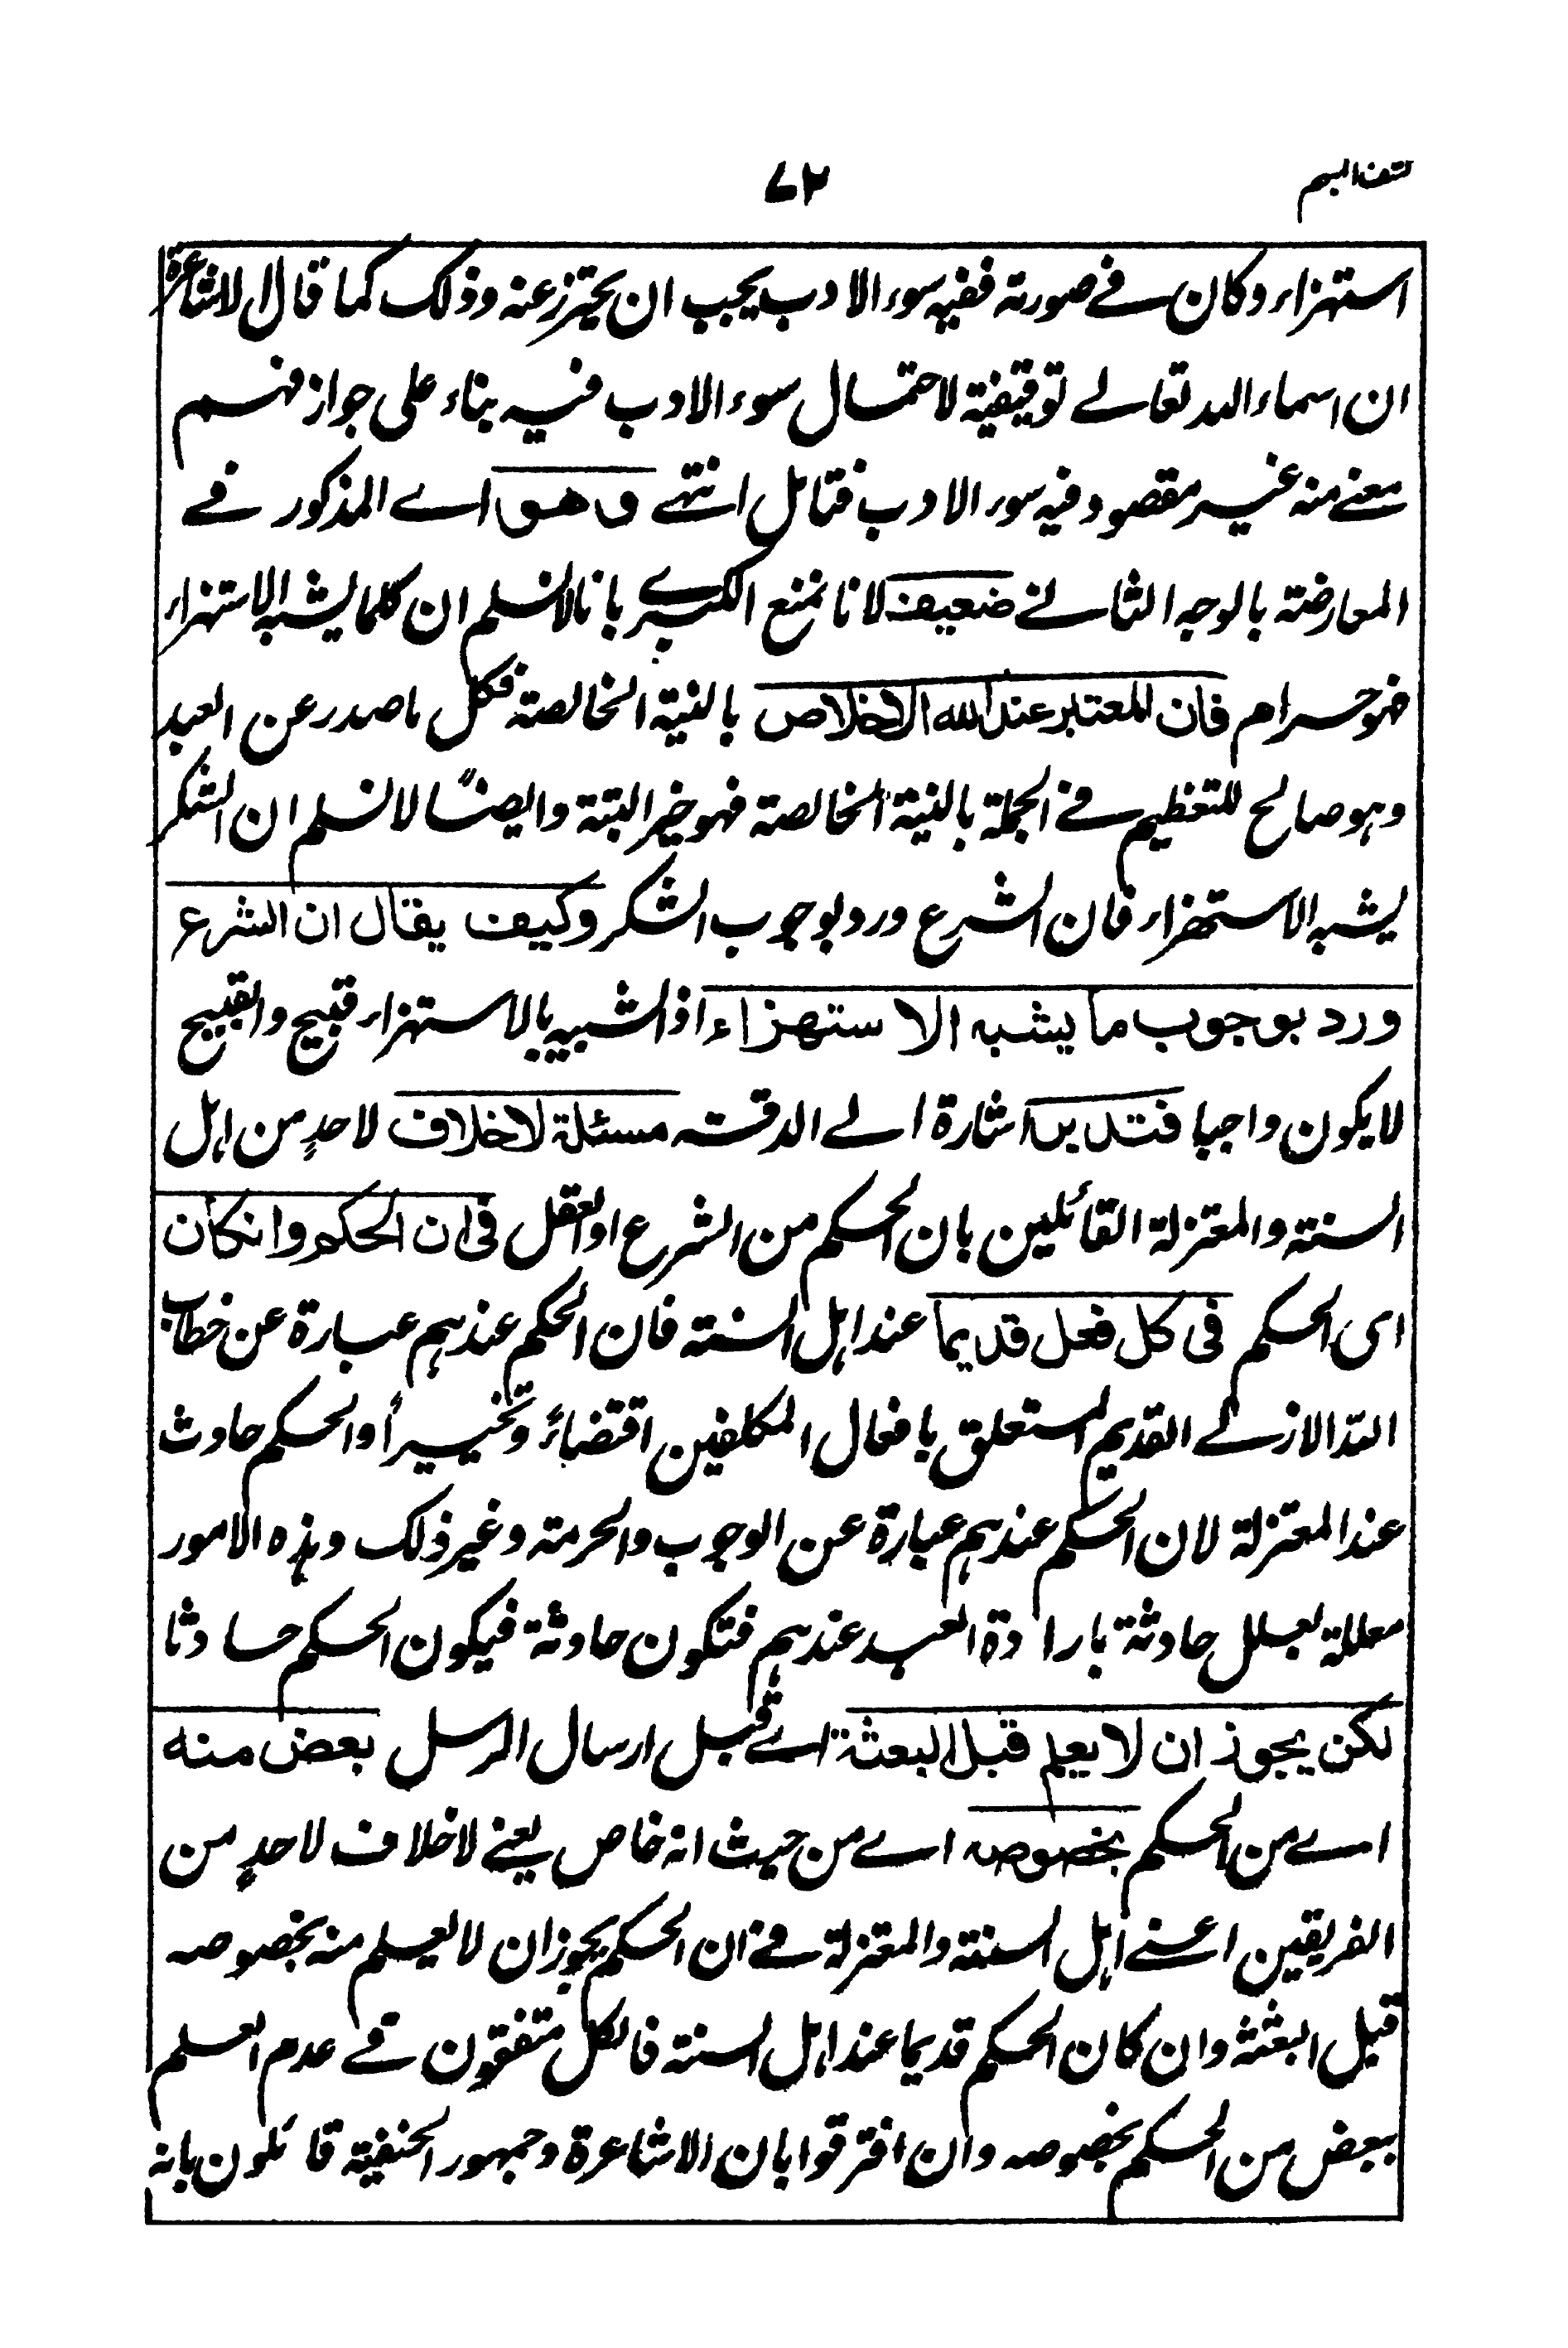 كشف المبهم
٧٢
استهزاء وكان في صورته ففيه سوء الادب يجب ان يحترز عنه وذلك كما قال الاشاعرة
ان اسماء الله تعالى توقيفية لاحتمال سوء الادب فيه بناء على جواز فهم
معنى منه غير مقصود فيه سوء الادب فتامل انتهى وهو اي المذكور في
المعارضة بالوجه الثاني ضعيف لانا نمنع الكبرى بانا لا نسلم ان كلما يشبه الاستهزاء
فهو حرام فان المعتبر عند الله الاخلاص بالنية الخالصة فكل ما صدر عن العبد
وهو صالح للتعظيم في الجملة بالنية الخالصة فهو خير البتة وايضًا لا نسلم ان الشكر
يشبه الاستهزاء فان الشرع ورد بوجوب الشكر وكيف يقال ان الشرع
ورد بوجوب ما يشبه الاستهزاء اذ الشبيه بالاستهزاء قبيح والقبيح
لا يكون واجبا فتدبر اشارة الى الدقة مسئلة لا خلاف لاحدٍ من اهل
السنة والمعتزلة القائلين بان الحكم من الشرع او العقل في ان الحكم وان كان
اى الحكم في كل فعل قديما عند اهل السنة فان الحكم عندهم عبارة عن خطاب
الله الازلي القديم المتعلق بافعال المكلفين اقتضاءً وتخييراً والحكم حادث
عند المعتزلة لان الحكم عندهم عبارة عن الوجوب والحرمة وغير ذلك وهذه الامور
معللة بعلل حادثة بارادة العبد عندهم فتكون حادثة فيكون الحكم حادثا
لكن يجوز ان لا يعلم قبل البعثة اي قبل ارسال الرسل بعض منه
اي من الحكم بخصوصه اي من حيث انه خاص يعني لا خلاف لاحدٍ من
الفريقين اعني اهل السنة والمعتزلة في ان الحكم يجوز ان لا يعلم منه بخصوصه
قبل البعثة وان كان الحكم قديما عند اهل السنة فالكل متفقون في عدم العلم
ببعض من الحكم بخصوصه وان افترقوا بان الاشاعرة وجمهور الحنفية قائلون بانه